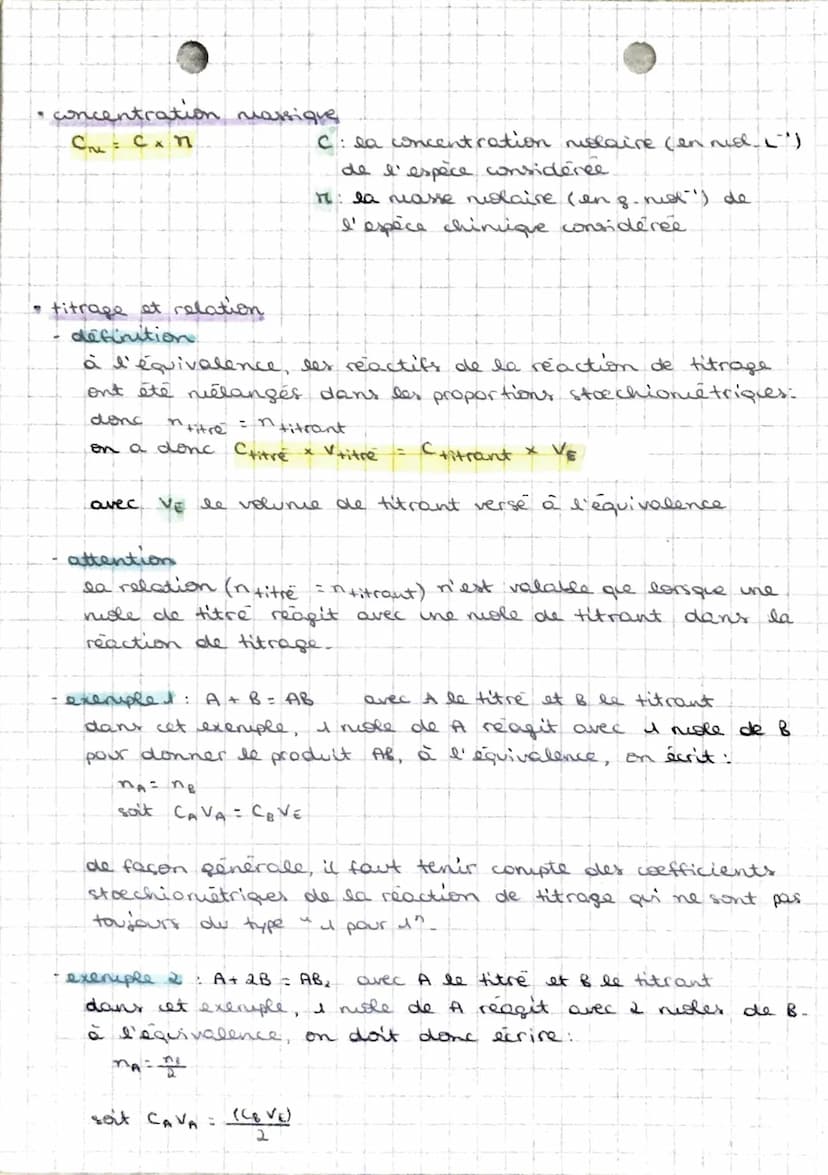 • concentration massique
Cm = C × M
C : la concentration molaire (en mol.L⁻¹)
de l'espèce considérée
M : la masse molaire (en g.mol⁻¹) de
l'espèce chimique considérée
• titrage et relation
- définition
à l'équivalence, les réactifs de la réaction de titrage
ont été mélangés dans les proportions stœchiométriques.
donc n titré = n titrant
on a donc C titré × V titré = C titrant × VE
avec VE le volume de titrant versé à l'équivalence
- attention
la relation (n titré = n titrant) n'est valable que lorsque une
mole de titré réagit avec une mole de titrant dans la
réaction de titrage.
- exemple 1 : A + B = AB avec A le titré et B le titrant
dans cet exemple, 1 mole de A réagit avec 1 mole de B
pour donner le produit AB, à l'équivalence, on écrit :
nA = nB
soit CA VA = CB VE
de façon générale, il faut tenir compte des coefficients
stœchiométriques de la réaction de titrage qui ne sont pas
toujours du type "1 pour 1".
- exemple 2 : A + 2B = AB₂ avec A le titré et B le titrant
dans cet exemple, 1 mole de A réagit avec 2 moles de B.
à l'équivalence, on doit donc écrire :
nA = nB/2
soit CA VA = (CB VE)/2